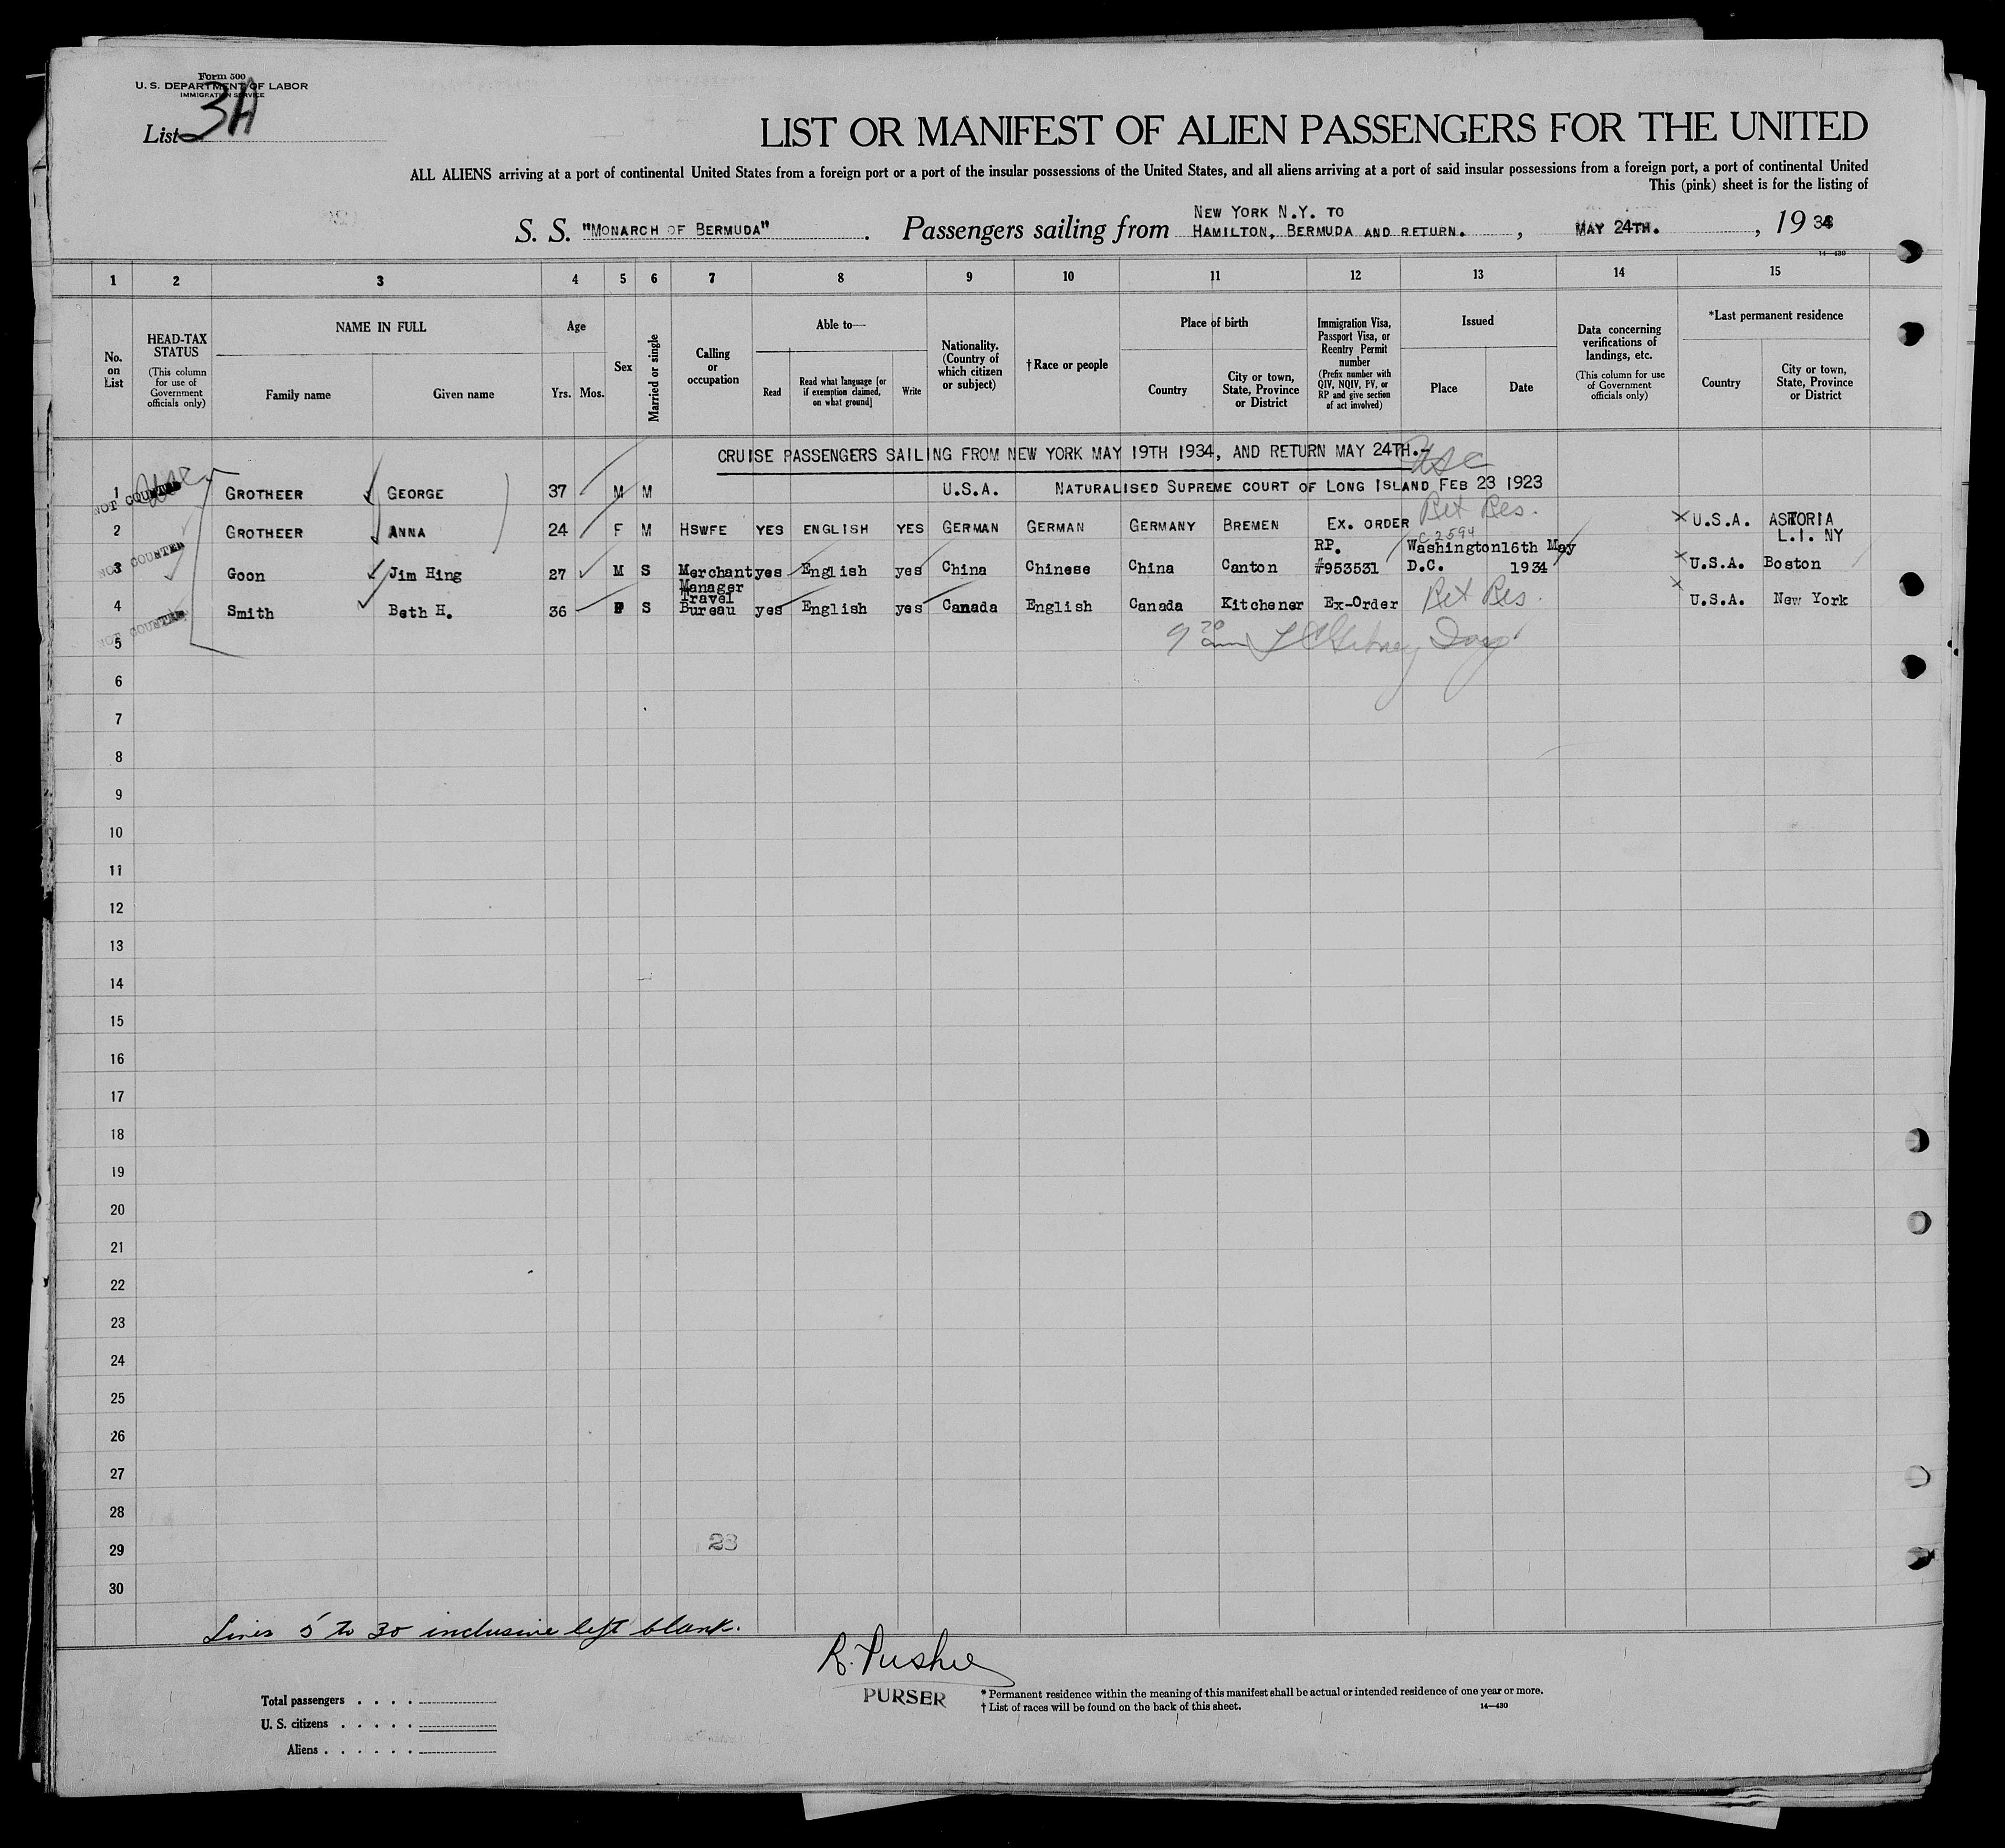 Form 500
U. S. DEPARTMENT OF LABOR
IMMIGRATION SERVICE
List 3A
LIST OR MANIFEST OF ALIEN PASSENGERS FOR THE UNITED
ALL ALIENS arriving at a port of continental United States from a foreign port or a port of the insular possessions of the United States, and all aliens arriving at a port of said insular possessions from a foreign port, a port of continental United
This (pink) sheet is for the listing of
S. S. "MONARCH OF BERMUDA". Passengers sailing from NEW YORK N.Y. TO
HAMILTON, BERMUDA AND RETURN. , MAY 24TH. , 1934
14—430
1 2 3 4 5 6 7 8 9 10 11 12 13 14 15
No. on List
HEAD-TAX STATUS (This column for use of Government officials only)
NAME IN FULL
Family name Given name
Age
Yrs. Mos.
Sex
Married or single
Calling or occupation
Able to—
Read
Read what language [or if exemption claimed, on what ground]
Write
Nationality. (Country of which citizen or subject)
†Race or people
Place of birth
Country
City or town, State, Province or District
Immigration Visa, Passport Visa, or Reentry Permit number (Prefix number with QIV, NQIV, PV, or RP and give section of act involved)
Issued
Place Date
Data concerning verifications of landings, etc. (This column for use of Government officials only)
*Last permanent residence
Country
City or town, State, Province or District
CRUISE PASSENGERS SAILING FROM NEW YORK MAY 19TH 1934, AND RETURN MAY 24TH.-
USC
1 NOT COUNTED USC GROTHEER GEORGE 37 M M U.S.A. NATURALISED SUPREME COURT OF LONG ISLAND FEB 23 1923
2 GROTHEER ANNA 24 F M HSWFE YES ENGLISH YES GERMAN GERMAN GERMANY BREMEN EX. ORDER Ret Res. U.S.A. ASTORIA L.I. NY
C 2594
3 NOT COUNTED Goon Jim Hing 27 M S Merchant yes English yes China Chinese China Canton RP. #953531 Washington D.C. 16th May 1934 U.S.A. Boston
4 Smith Beth H. 36 F S Manager Travel Bureau yes English yes Canada English Canada Kitchener Ex-Order Ret Res. U.S.A. New York
5 NOT COUNTED
9 20 am
6
7
8
9
10
11
12
13
14
15
16
17
18
19
20
21
22
23
24
25
26
27
28
23
29
30
Lines 5 to 30 inclusive left blank.
PURSER
* Permanent residence within the meaning of this manifest shall be actual or intended residence of one year or more.
† List of races will be found on the back of this sheet. 14—430
Total passengers . . . .
U. S. citizens . . . . .
Aliens . . . . . .